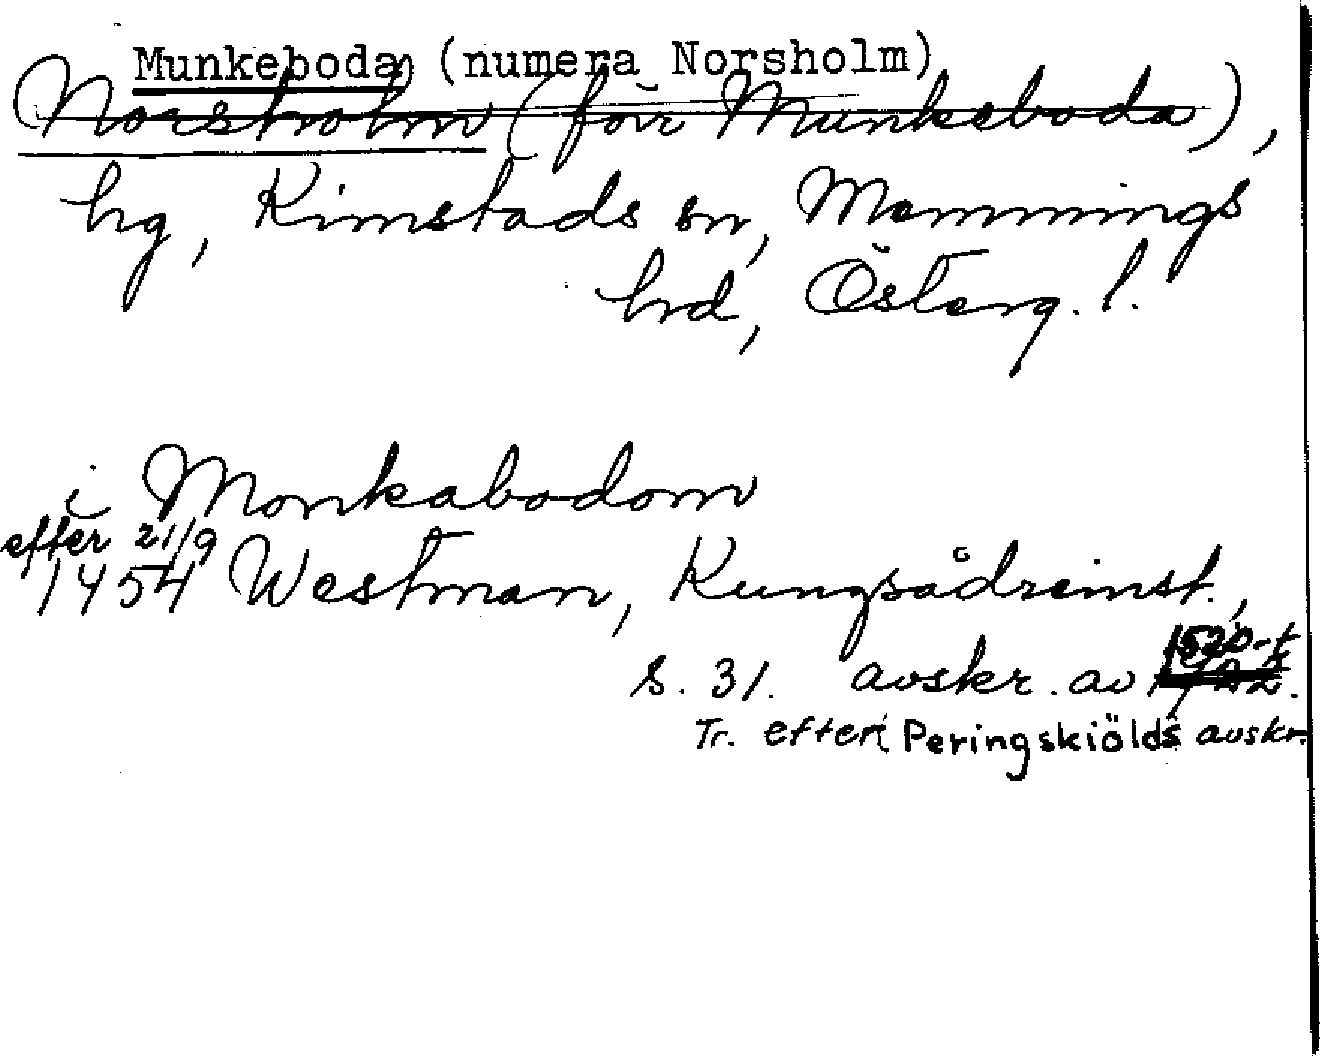 Munkeboda (numera Norsholm)
Norsholm (förr Munkeboda),
hg, Kimstads sn, Memmings
hd, Österg. l.
i Monkabodom
efter 21/9
1454 Westman, Kungsådreinst.,
s. 31. avskr. av 1520-t
Tr. efter Peringskiölds avskr.